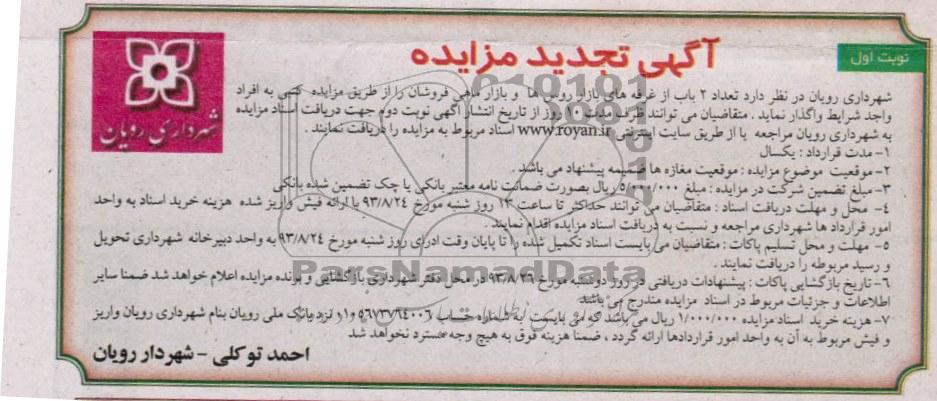 نوبت اول
آگهی تجدید مزایده
شهرداری رویان
شهرداری رویان در نظر دارد تعداد ۲ باب از غرفه های بازار روس ها و بازار ماهی فروشان را از طریق مزایده کتبی به افراد
واجد شرایط واگذار نماید . متقاضیان می توانند ظرف مدت ۱۰ روز از تاریخ انتشار آگهی نوبت دوم جهت دریافت اسناد مزایده
به شهرداری رویان مراجعه یا از طریق سایت اینترنتی www.royan.ir اسناد مربوط به مزایده را دریافت نمایند .
۱- مدت قرارداد : یکسال
۲- موقعیت موضوع مزایده : موقعیت مغازه ها ضمیمه پیشنهاد می باشد .
۳- مبلغ تضمین شرکت در مزایده : مبلغ ۵/۰۰۰/۰۰۰ ریال بصورت ضمانت نامه معتبر بانکی یا چک تضمین شده بانکی
۴- محل و مهلت دریافت اسناد : متقاضیان می توانند حداکثر تا ساعت ۱۳ روز شنبه مورخ ۹۳/۸/۲۴ با ارائه فیش واریز شده هزینه خرید اسناد به واحد
امور قرارداد ها شهرداری مراجعه و نسبت به دریافت اسناد مزایده اقدام نمایند .
۵- مهلت و محل تسلیم پاکات : متقاضیان می بایست اسناد تکمیل شده را تا پایان وقت اداری روز شنبه مورخ ۹۳/۸/۲۴ به واحد دبیرخانه شهرداری تحویل
و رسید مربوطه را دریافت نمایند .
۶- تاریخ بازگشایی پاکات : پیشنهادات دریافتی در روز دوشنبه مورخ ۹۳/۸/۲۶ در محل دفتر شهرداری بازگشایی و برنده مزایده اعلام خواهد شد ضمنا سایر
اطلاعات و جزئیات مربوط در اسناد مزایده مندرج می باشد
۷- هزینه خرید اسناد مزایده ۱/۰۰۰/۰۰۰ ریال می باشد که می بایست به شماره حساب نزد بانک ملی رویان بنام شهرداری رویان واریز
و فیش مربوط به آن به واحد امور قراردادها ارائه گردد ، ضمنا هزینه فوق به هیچ وجه مسترد نخواهد شد
احمد توکلی - شهردار رویان
ParsNamadData